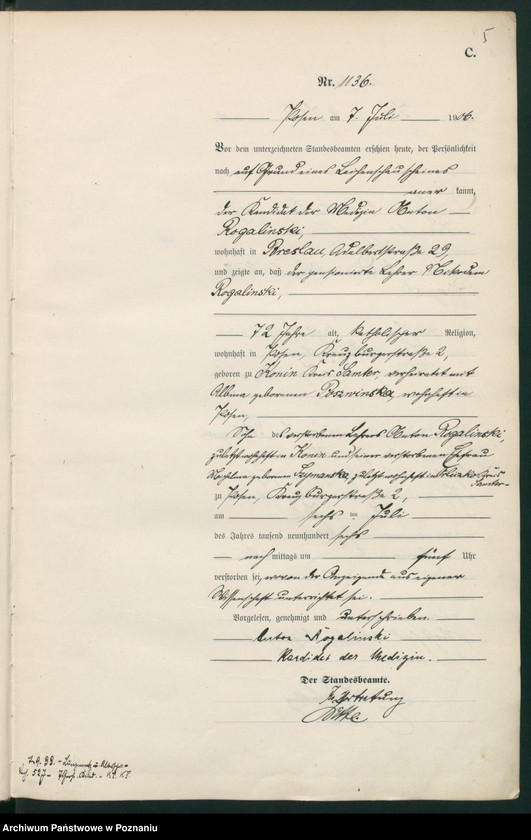 5
C.
Nr. 1136.
Posen am 7. Juli 1906.
Vor dem unterzeichneten Standesbeamten erschien heute, der Persönlichkeit
nach auf Grund eines Leichenschauscheines
aner kannt,
der Kandidat der Medizin Anton
Rogalinski,
wohnhaft in Breslau, Adalbertstraße 29,
und zeigte an, daß der pensionierte Lehrer
Rogalinski,
72 Jahre alt, katholischer Religion,
wohnhaft in Posen, Kreuzburgerstraße 2,
geboren zu Konin Kreis Samter, verheiratet mit
Albina geborenen wohnhaft in
Posen,
Sohn des verstorbenen Lehrers Anton Rogalinski,
zuletzt wohnhaft in Konin und seiner verstorbenen Ehefrau
geborenen Szymanska, zuletzt wohnhaft in Kreis
Samter
zu Posen, Kreuzburgerstraße 2,
am sechs ten Juli
des Jahres tausend neunhundert sechs
nach mittags um fünf Uhr
verstorben sei, wovon der Anzeigende aus eigener
Wissenschaft unterrichtet sei.
Vorgelesen, genehmigt und unterschrieben.
Anton Rogalinski
Kandidat der Medizin.
Der Standesbeamte.
In Vertretung
Archiwum Państwowe w Poznaniu